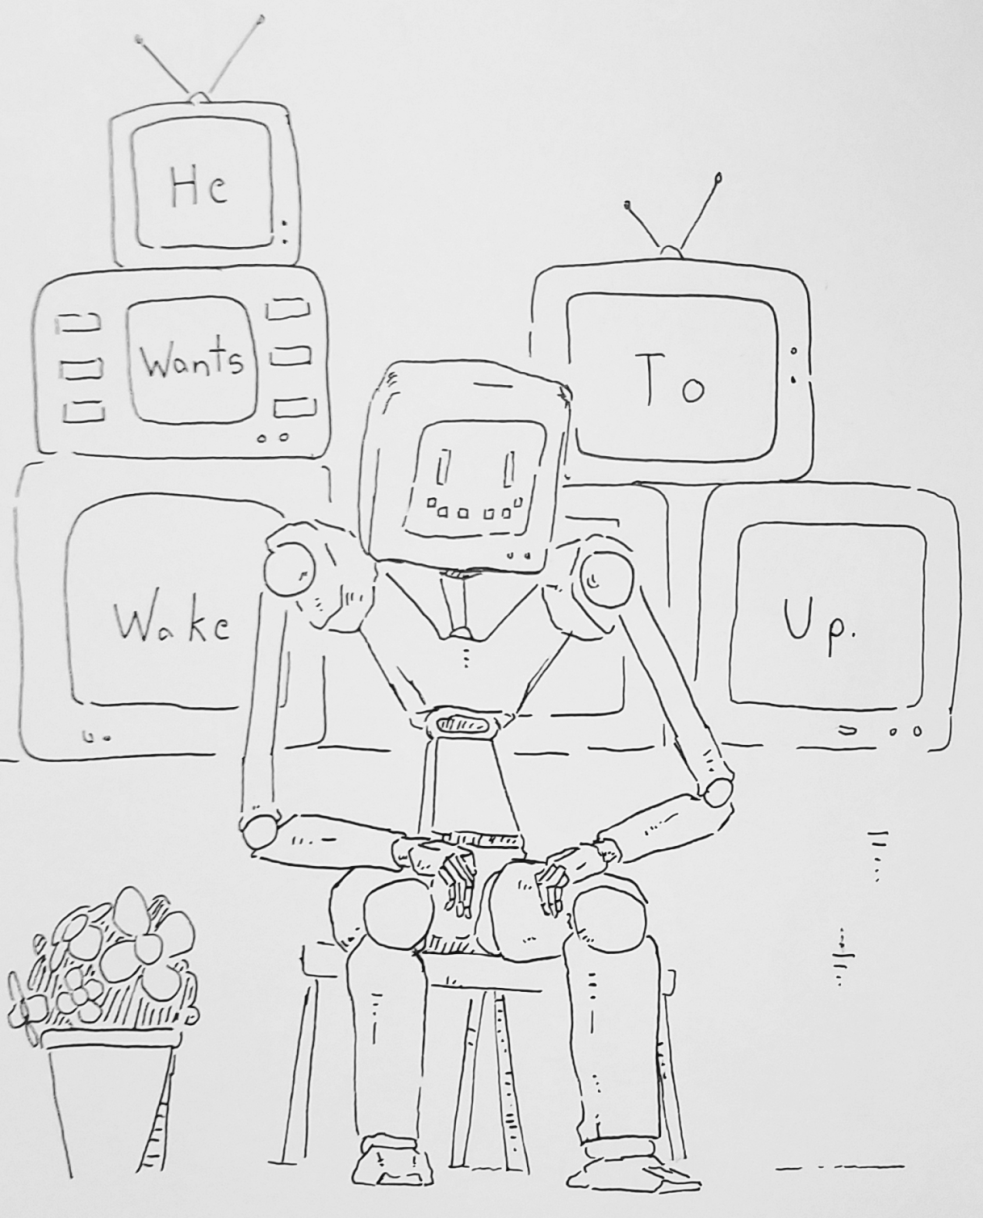 He
Wants
To
Wake
Up.